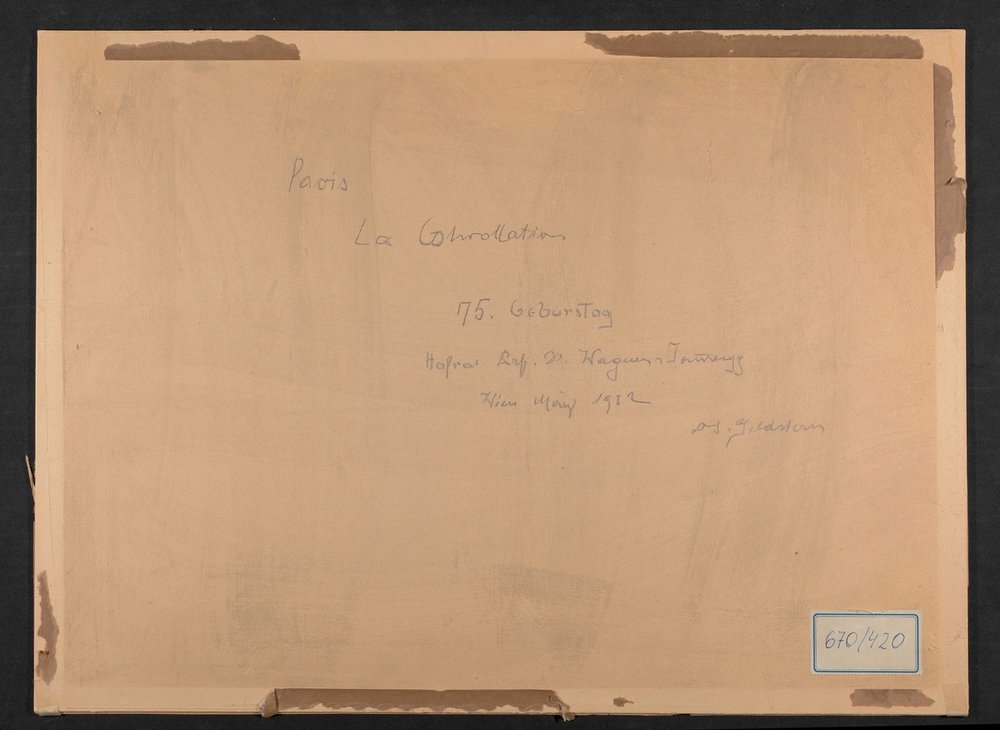 Paris
La
75. Geburstag
Hofrat Prf. Dr. Wagner-Jauregg
Wien März 1932
Dr.
670/420